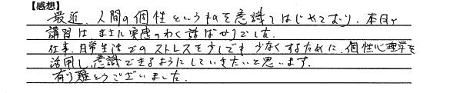 【感想】
最近、人間の個性というものを意識しはじめており、本日の
講習は、まさに実感のわく話ばかりでした。
仕事、日常生活でのストレスを少しでも少なくするために、個性心理学を
活用し、意識できるようにしていきたいと思います。
有り難うございました。